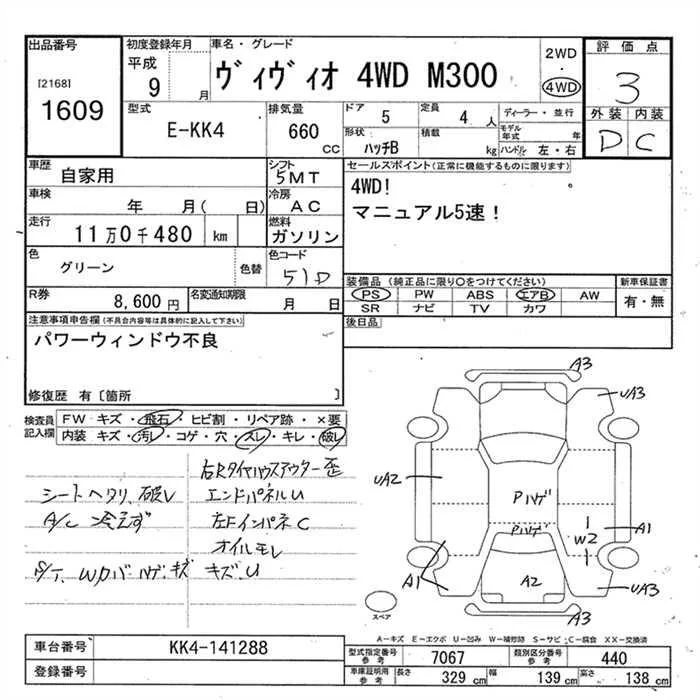 出品番号
[2168]
1609
初度登録年月
平成
9 月
車名・グレード
ヴィヴィオ 4WD M300
2WD
・
4WD
評価点
3
外装 内装
D C
型式
E-KK4
排気量
660
CC
ドア
5
定員
4 人
形状
ハッチB
積載
kg
ディーラー・並行
モデル年式 年
ハンドル 左・右
車歴
自家用
シフト
5MT
車検
年 月( 日)
冷房
AC
走行
11万0千480 km
燃料
ガソリン
色
グリーン
色替
色コード
51D
R券
8,600円
名変通知期限
月 日
セールスポイント(正常に機能するものに限ります)
4WD!
マニュアル5速!
装備品 (純正品に限り○をつけてください)
PS PW ABS エアB AW
SR ナビ TV カワ
新車保証書
有・無
後日品
注意事項申告欄(不具合内容等は具体的に記入して下さい)
パワーウィンドウ不良
修復歴 有〔箇所 〕
検査員記入欄
FW キズ・飛石・ヒビ割・リペア跡・×要
内装 キズ・汚レ・コゲ・穴・スレ・キレ・破レ
シートヘタリ、破レ
A/C 冷えず
S/T、Wカバーハゲ、キズ
右Rタイヤハウスアウター歪
エンドパネルU
左FインパネC
オイルモレ
キズ、U
A3
UA3
UA2
Pハゲ
Pハゲ
A1
W2
A1
A2
UA3
A3
スペア
A―キズ E―エクボ U―凹み W―補修跡 S―サビ C―腐食 XX―交換済
車台番号
KK4-141288
登録番号
型式指定番号
参考
7067
類別区分番号
参考
440
車庫証明用
参考
長さ
329 cm
幅
139 cm
高さ
138 cm